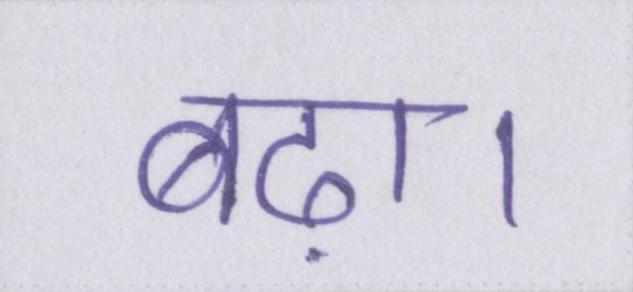 बढ़ा।